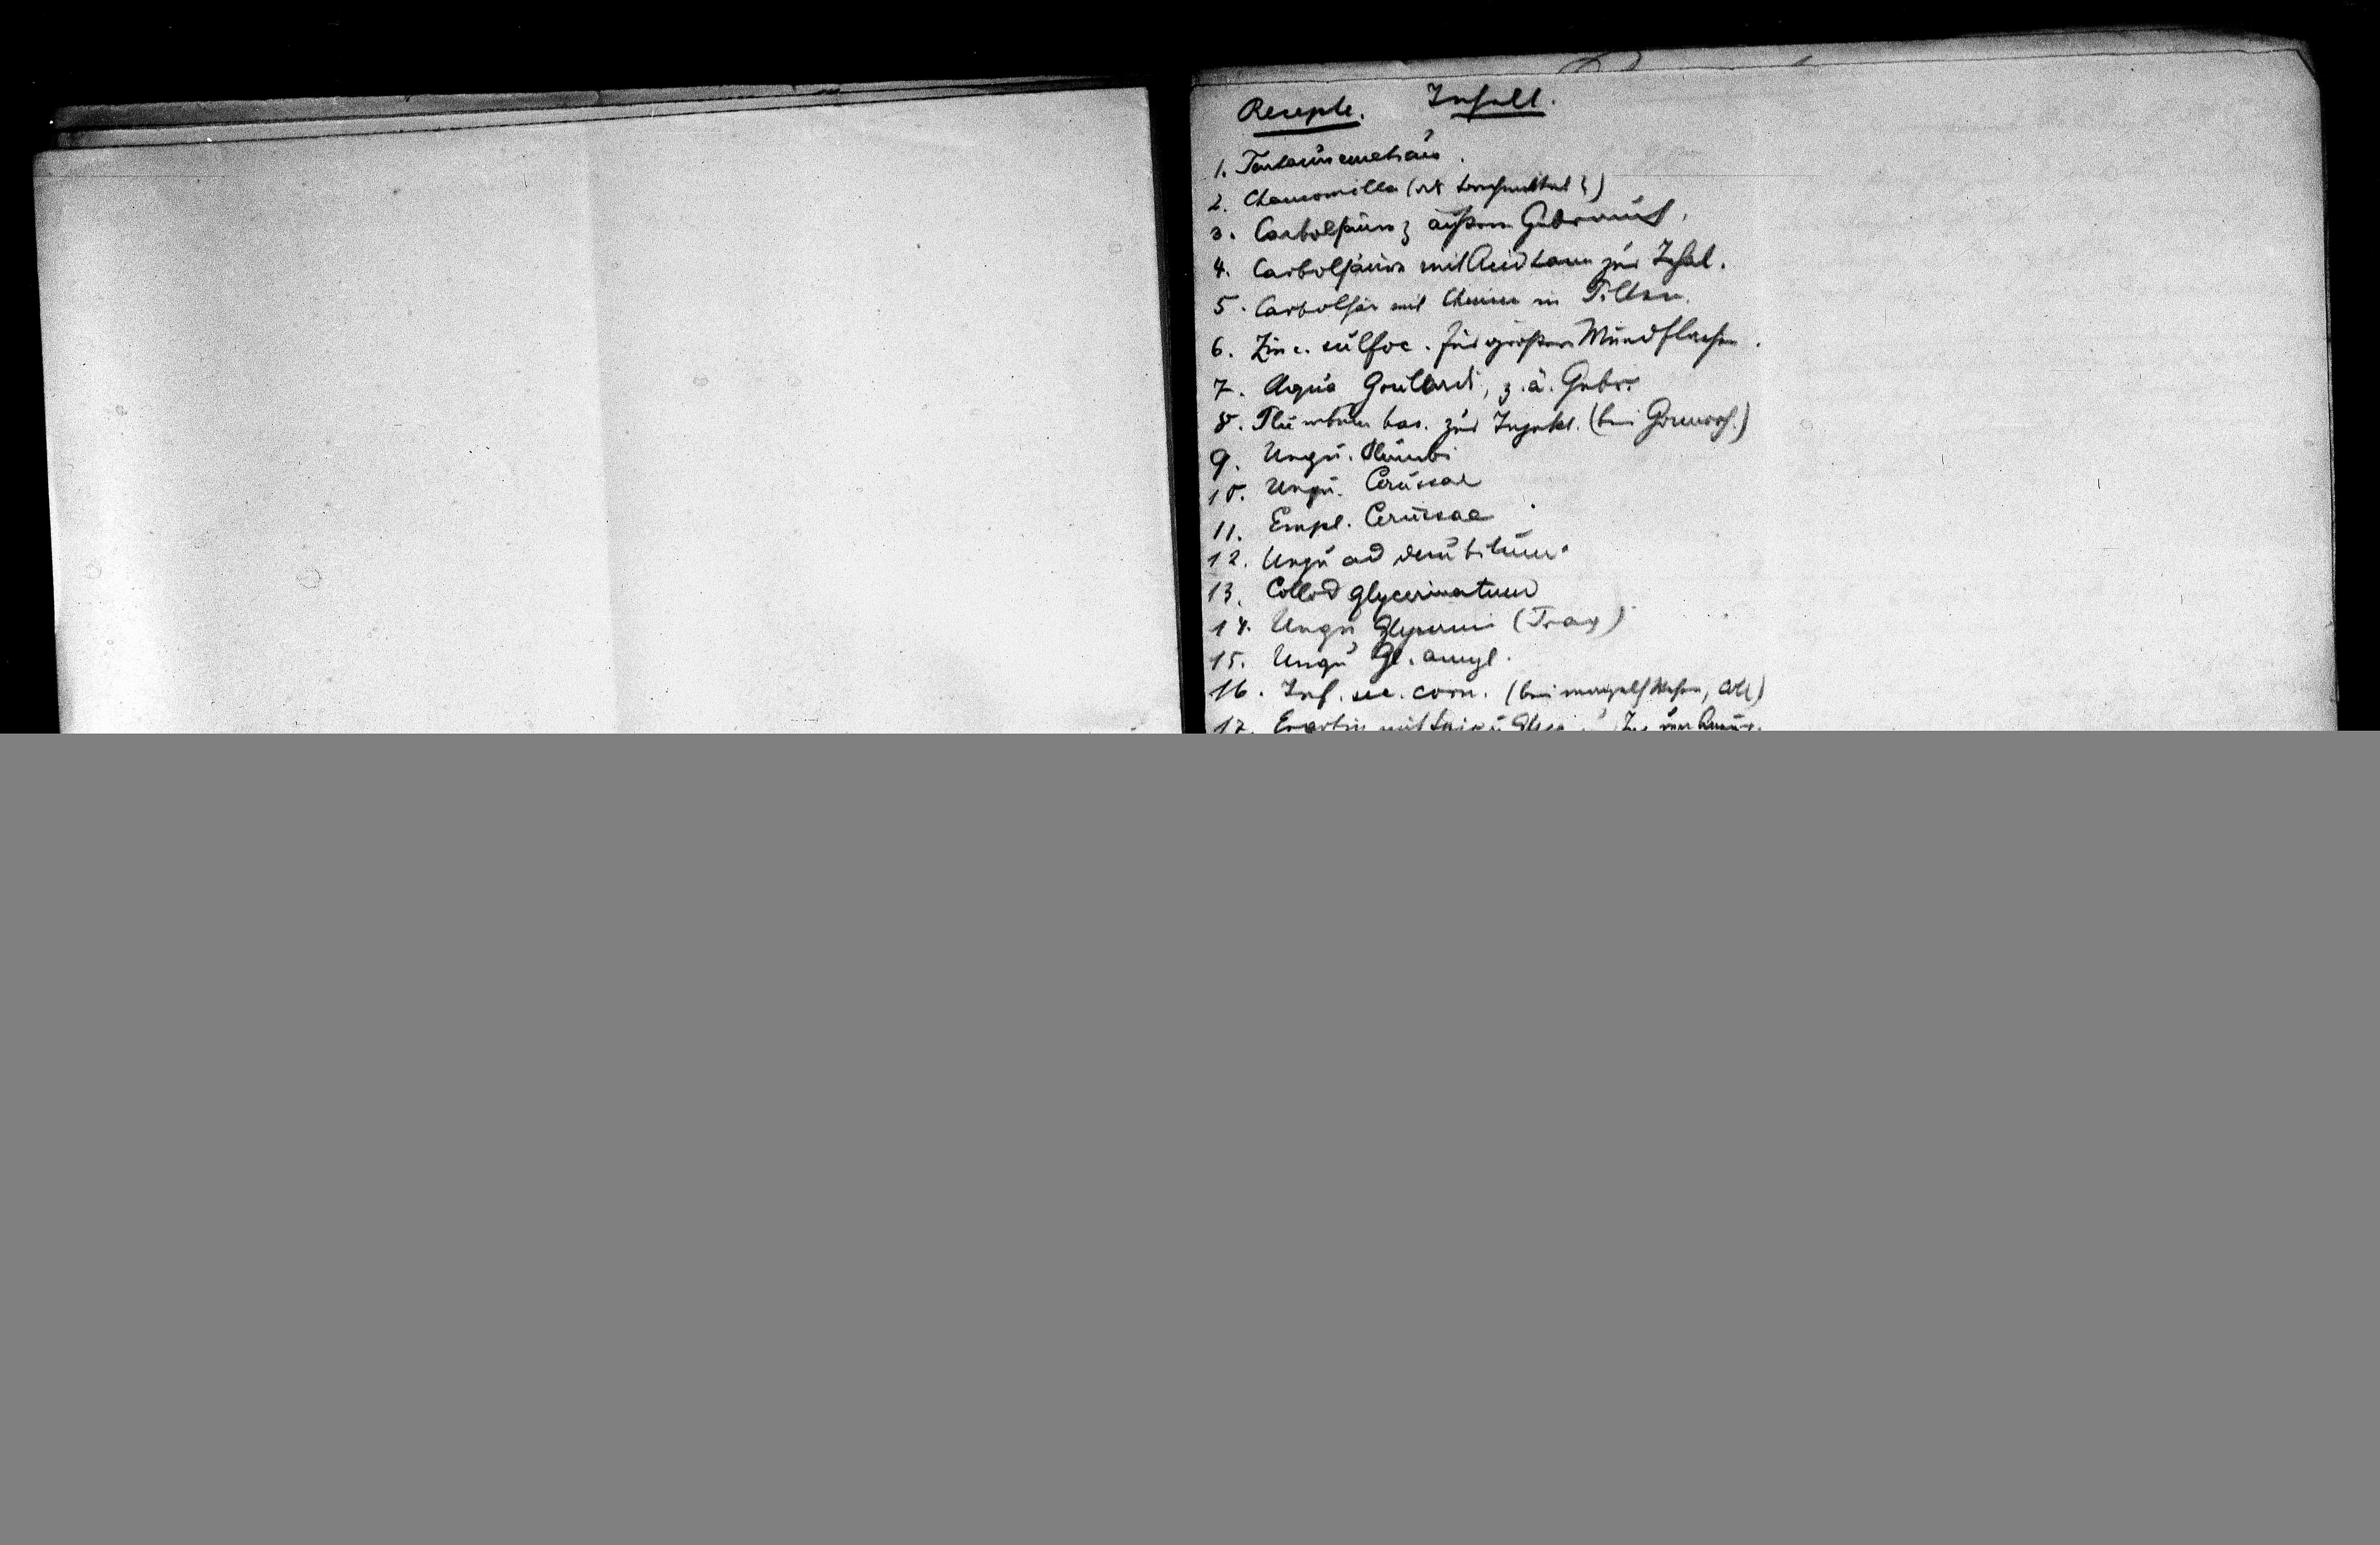 Recepte. Inhalt.
1. Tartarus emeticus.
2. Chamomilla (als
3. Carbolsäure z äußern Gebrauch.
4. Carbolsäure mit Acid tann zur Inhal.
5. Carbolsär mit Chinin in Pillen.
6. Zinc. sulfoc. für größere Wundflächen.
7. Aqua Goulardi, z. ä. Gebr.
8. Plumbum bas. zur Injekt. (bei Gonorrh.)
9. Ungu. Plumbi
10. Ungu. Cerussae
11. Empl. Cerussae
12. Ungu ad decubitum.
13. Collod glycerinatum
14. Ungu Glycerini (Trag)
15. Ungu Gl. amyl.
16. Inf. sec. corn. (bei
17. Ergotin mit